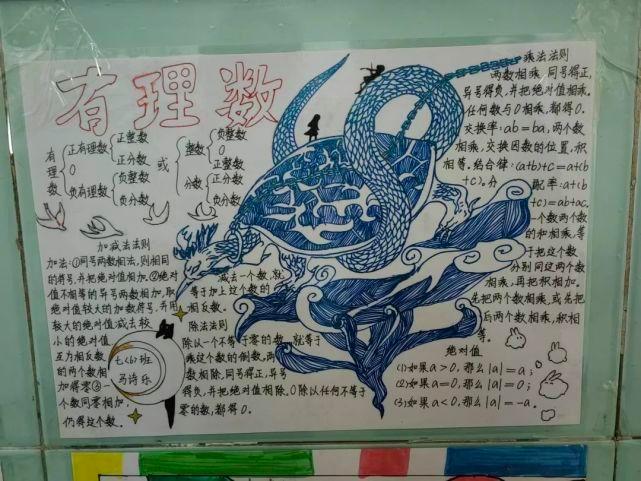 有理数
有理数
正有理数
正整数
正分数
0
负有理数
负整数
负分数
或
整数
负整数
0
正整数
分数
正分数
负分数
加减法法则
加法:①同号两数相法,则相同
的符号,并把绝对值相加.②绝对
值不相等的异号两数相加,取
绝对值较大的加数符号,并用
较大的绝对值减去较
小的绝对值
互为相反数
的两个数相
加得零③一
个数同零相加,
仍得这个数.
减去一个数,就
等于加上这个数的
相反数.
除法法则
除以一个不等于零的数,就等于
乘这个数的倒数,两
数相除,同号得正,异号
得负,并把绝对值相除.0除以任何不等于
零的数,都得0.
七(6)班
马诗乐
乘法法则
两数相乘,同号得正,
异号得负,并把绝对值相乘.
任何数与0相乘,都得0.
交换率:ab=ba,两个数
相乘,交换因数的位置,积
相等.结合律:(a+b)+c=a+(b
+c)。分配率:a+(b
+c)=ab+ac,
一个数两个数
的和相乘,等
于把这个数
分别同这两个数
相乘,再把积相加.
先把两个数相乘,或先把
后两个数相乘,积相
等。
绝对值
(1)如果a>0,那么|a|=a;
(2)如果a=0,那么|a|=0;
(3)如果a<0,那么|a|=-a。